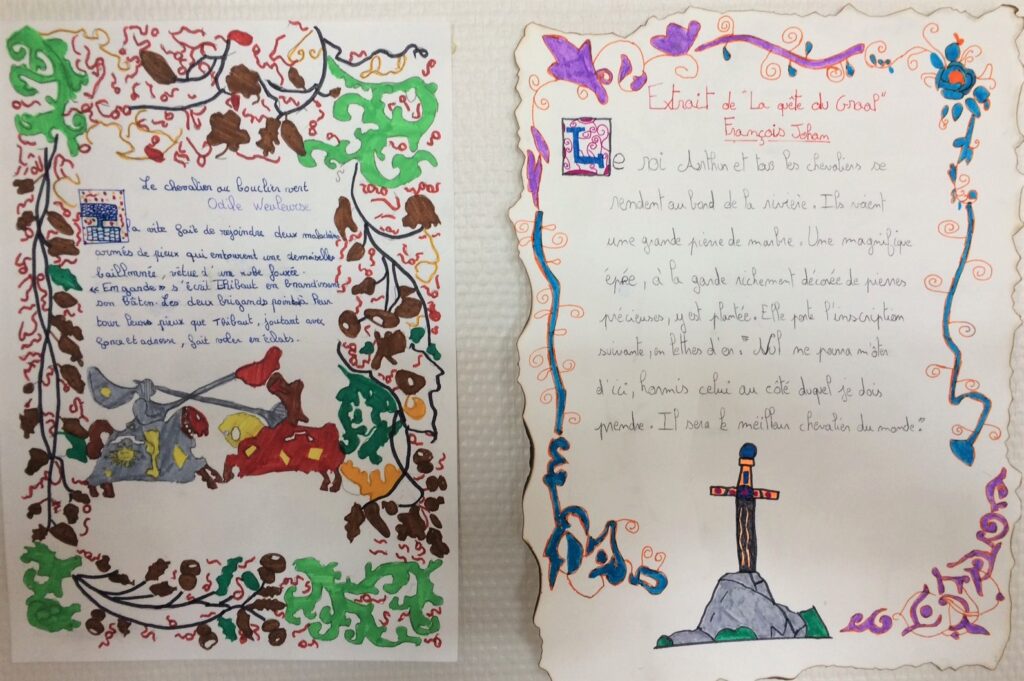 Le chevalier au bouclier vert
Odile Weulersse
Il a vite fait de rejoindre deux malandrins
armés de pieux qui entourent une demoiselle
baillonnée, vêtue d'une robe fourrée.
« En garde » s'écrit Thibaut en brandissant
son bâton. Les deux brigands pointent leur
tour leurs pieux que Thibaut, joutant avec
force et adresse, fait voler en éclats.
Extrait de "La quête du Graal"
François Johan
Le roi Arthur et tous les chevaliers se
rendent au bord de la rivière. Ils voient
une grande pierre de marbre. Une magnifique
épée, à la garde richement décorée de pierres
précieuses, y est plantée. Elle porte l'inscription
suivante, en lettres d'or. "Nul ne pourra m'ôter
d'ici, hormis celui au côté duquel je dois
prendre. Il sera le meilleur chevalier du monde."